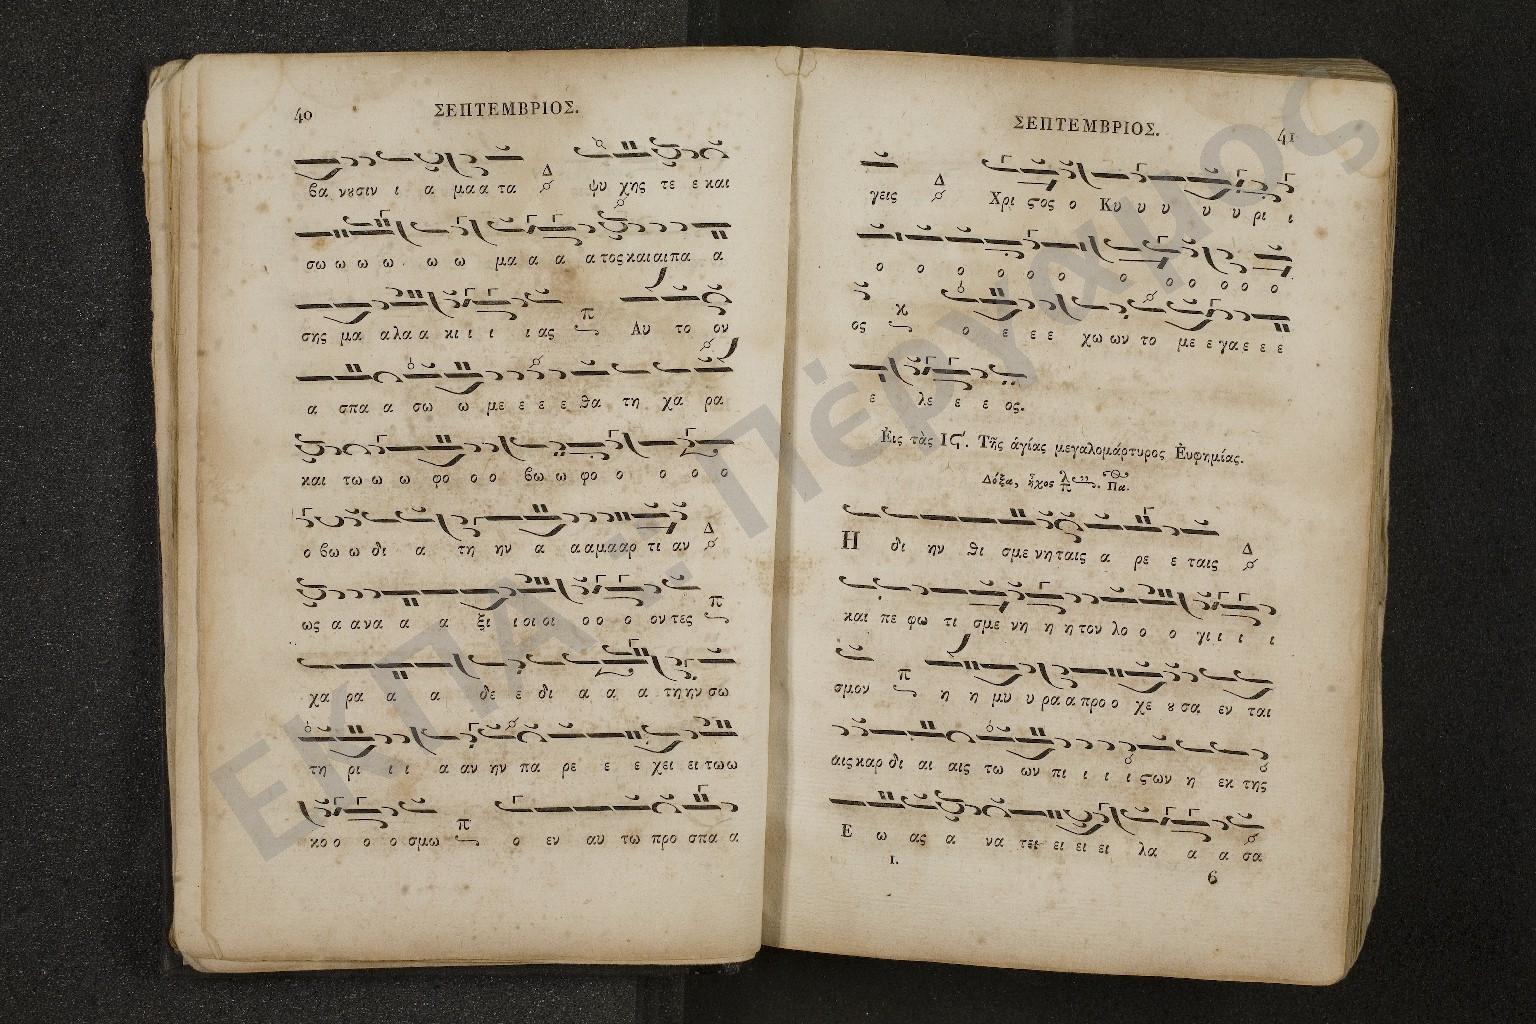 40
ΣΕΠΤΕΜΒΡΙΟΣ.
βα νȣσιν ι α μα α τα Δ ψυ χης τε ε και
σω ω ω ω ω ω μα α α α τος και αι πα α
σης μα α λα α κι ι ι ι ας π Αυ το ον
α σπα α σω ω με ε ε ε θα τη χα ρα
και τω ω ω φο ο ο βω ω φο ο ο ο ο
ο βω ω δι α τη ην α α α μα αρ τι αν Δ
ως α α να α α ξι ι οι οι ο ο ο ον τες π
χα ρα α α δε ε δι α α α τη ην σω
τη ρι ι ι α αν ην πα ρε ε ε χει ει τω ω
κο ο ο ο σμω π ο εν αυ τω προ σπα α
ΣΕΠΤΕΜΒΡΙΟΣ.
41
γεις Δ Χρι ςος ο Κυ υ υ υ υ ρι ι
ο ο ο ο ο ο ο ο ο ο ο
ος κ ο ε ε ε χω ων το με ε γα ε ε ε
ε λε ε ε ος.
Εἰς τὰς Ιϛ΄. Τῆς ἁγίας μεγαλομάρτυρος Εὐφημίας.
Δόξα, ἦχος λ π Πα.
Η δι ην θι σμε νη ταις α ρε ε ταις Δ
και πε φω τι σμε νη η η τον λο ο ο γι ι ι ι
σμον π η η μυ υ ρα α προ ο χε ȣ σα εν ται
αις καρ δι αι αις τω ων πι ι ι ι ςων η εκ της
Ε ω ας α να τει ει ει ει λα α α σα
Ι.
6
ΕΚΠΑ.: Πέργαμος